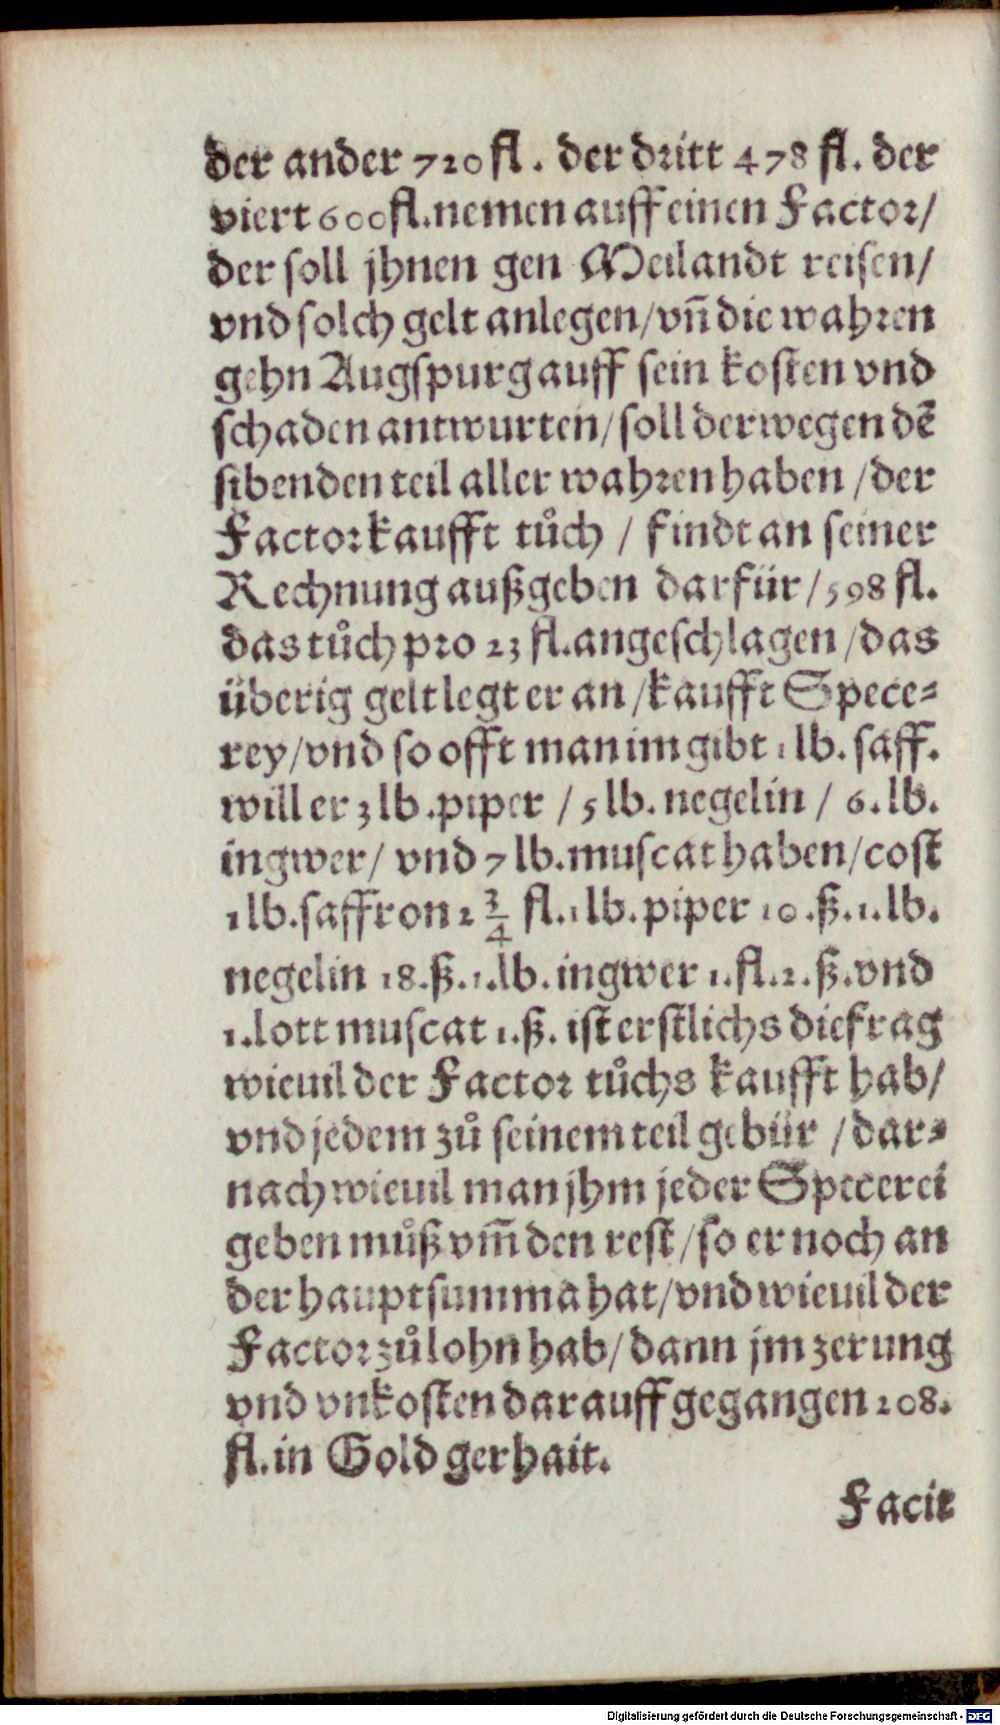 der ander 720 fl. der dritt 478 fl. der
viert 600 fl. nemen auff einen Factor/
der soll jhnen gen Meilandt reisen/
vnd solch gelt anlegen/vñ die wahren
gehn Augspurg auff sein kosten vnd
schaden antwurten/soll derwegen dē
sibenden teil aller wahren haben/der
Factor kaufft tůch / findt an seiner
Rechnung außgeben darfür/598 fl.
das tůch pro 23 fl. angeschlagen/das
überig gelt legt er an/kaufft Spece=
rey/vnd so offt man im gibt 1 lb. saff.
will er 3 lb. piper /5 lb. negelin / 6. lb.
ingwer/ vnd 7 lb. muscat haben/cost
1 lb. saffron 2 3/4 fl. 1 lb. piper 10. ß. 1. lb.
negelin 18. ß. 1. lb. ingwer 1. fl. 2. ß. vnd
1. lott muscat 1. ß. ist erstlichs die frag
wieuil der Factor tůchs kaufft hab/
vnd jedem zů seinem teil gebür /dar=
nach wieuil man jhm jeder Specerei
geben můß vm̄ den rest/so er noch an
der hauptsumma hat/vnd wieuil der
Factor zů lohn hab/dann jm zerung
vnd vnkosten darauff gegangen 208.
fl. in Gold gerhait.
Facit
Digitalisierung gefördert durch die Deutsche Forschungsgemeinschaft - DFG